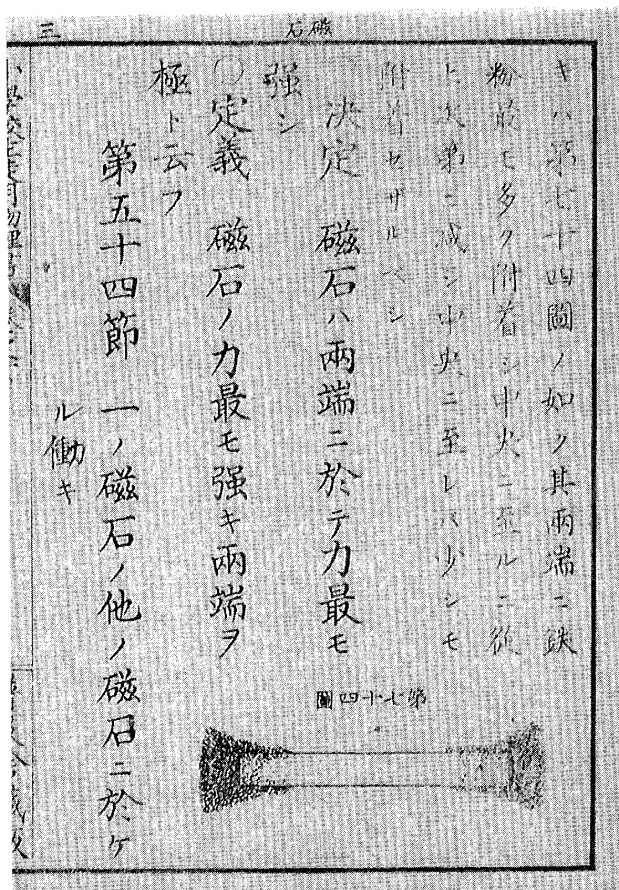 磁石
三
キハ第七十四圖ノ如ク其兩端ニ鉄
粉最モ多ク附着シ中央ニ至ルニ從
ヒ次第ニ減シ中央ニ至レバ少シモ
附着セザルベシ
決定 磁石ハ兩端ニ於テ力最モ
强シ
定義 磁石ノ力最モ强キ兩端ヲ
極ト云フ
第七十四圖
第五十四節 一ノ磁石ノ他ノ磁石ニ於ケ
ル働キ
小學校生徒用物理書